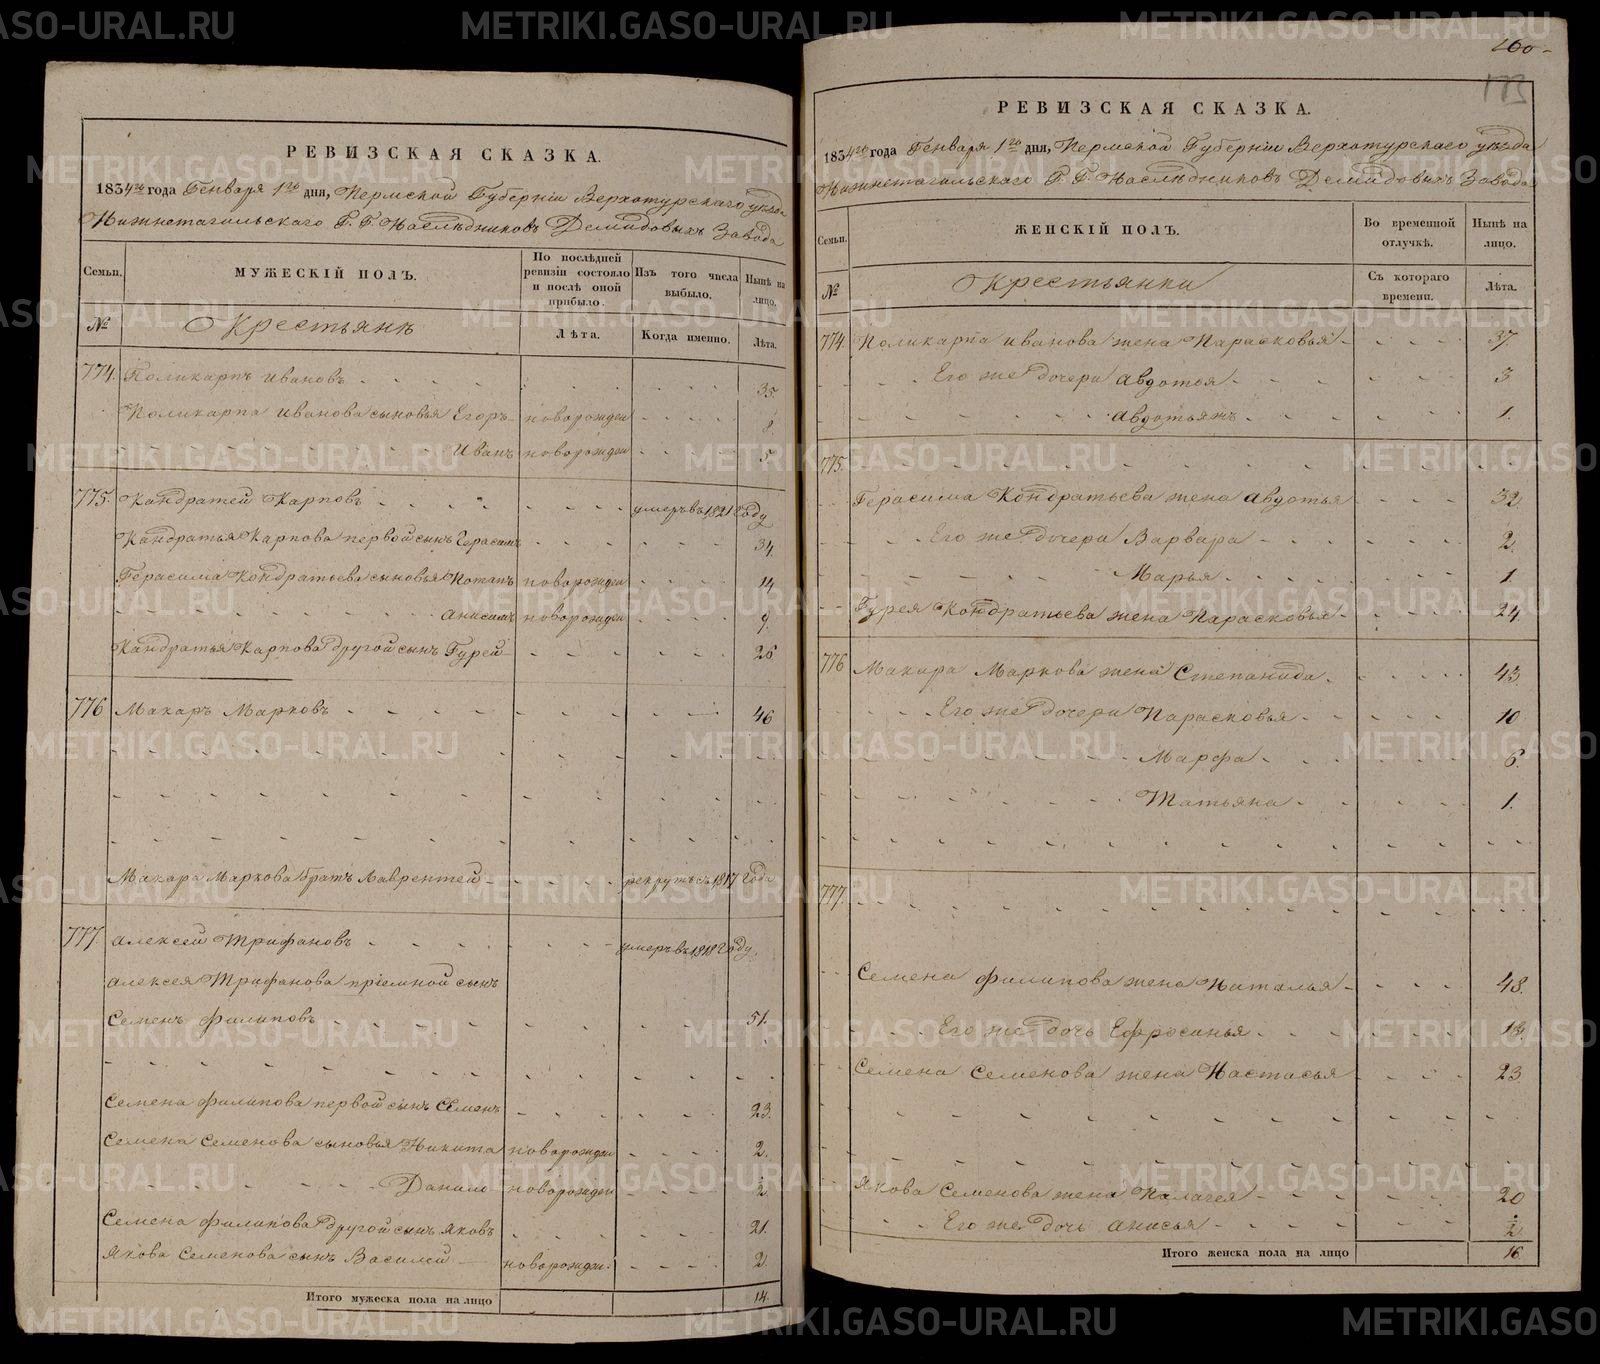 РЕВИЗСКАЯ СКАЗКА.
1834го года Генваря 1го дня, Пермской Губернiи Верхотурскаго уѣзда
Нижнетагильскаго Г. Г. Наслѣдниковъ Демидовыхъ Завода
Семьи.
МУЖЕСКIЙ ПОЛЪ.
По послѣдней ревизiи состояло и послѣ оной прибыло.
Изъ того числа выбыло.
Нынѣ на лицо.
№
Крестьянѣ
Лѣта.
Когда именно.
Лѣта.
774. Поликарпъ Ивановъ 35
Поликарпа Иванова сыновья Егоръ новорожден 8
Иванъ новорожден 5
775. Кандратей Карповъ умеръ въ 1821 году
Кандратья Карпова первой сынъ Герасимъ 34
Герасима Кондратьева сыновья Потапъ новорожден 14
Анисимъ новорожден 9
Кандратья Карпова другой сынъ Гурей 26
776 Макаръ Марковъ 46
Макара Маркова братъ Лаврентей рекрутъ съ 1817 года
777 Алексей Трифановъ умеръ въ 1818 году
Алексея Трифанова прiемной сынъ
Семенъ Филиповъ 51.
Семена Филипова первой сынъ Семенъ 23.
Семена Семенова сыновья Никита новорожден 2.
Данило новорожден 1/2
Семена Филипова другой сынъ Яковъ 21.
Якова Семенова сынъ Василей новорожден. 2
Итого мужеска пола на лицо 14.
160
173
РЕВИЗСКАЯ СКАЗКА.
1834го года Генваря 1го дня, Пермской Губернiи Верхотурскаго уѣзда
Нижнетагильскаго Г. Г. Наслѣдниковъ Демидовыхъ Завода
Семьи.
ЖЕНСКIЙ ПОЛЪ.
Во временной отлучкѣ.
Нынѣ на лицо.
№
Крестьянки
Съ котораго времени.
Лѣта.
774. Поликарпа Иванова жена Парасковья 37
Его же дочери Авдотья 3
Авдотья жъ 1.
775.
Герасима Кондратьева жена Авдотья 32
Его же дочери Варвара 2
Марья 1.
Гурея Кондратьева жена Парасковья 24
776 Макара Маркова жена Степанида 43
Его же дочери Парасковья 10
Марфа 6.
Татьяна 1.
777.
Семена Филипова жена Наталья 48.
Его же дочь Ефросинья 13.
Семена Семенова жена Настасья 23
Якова Семенова жена Палагея 20
Его же дочь Анисья 1/2
Итого женска пола на лицо 16.
METRIKI.GASO-URAL.RU